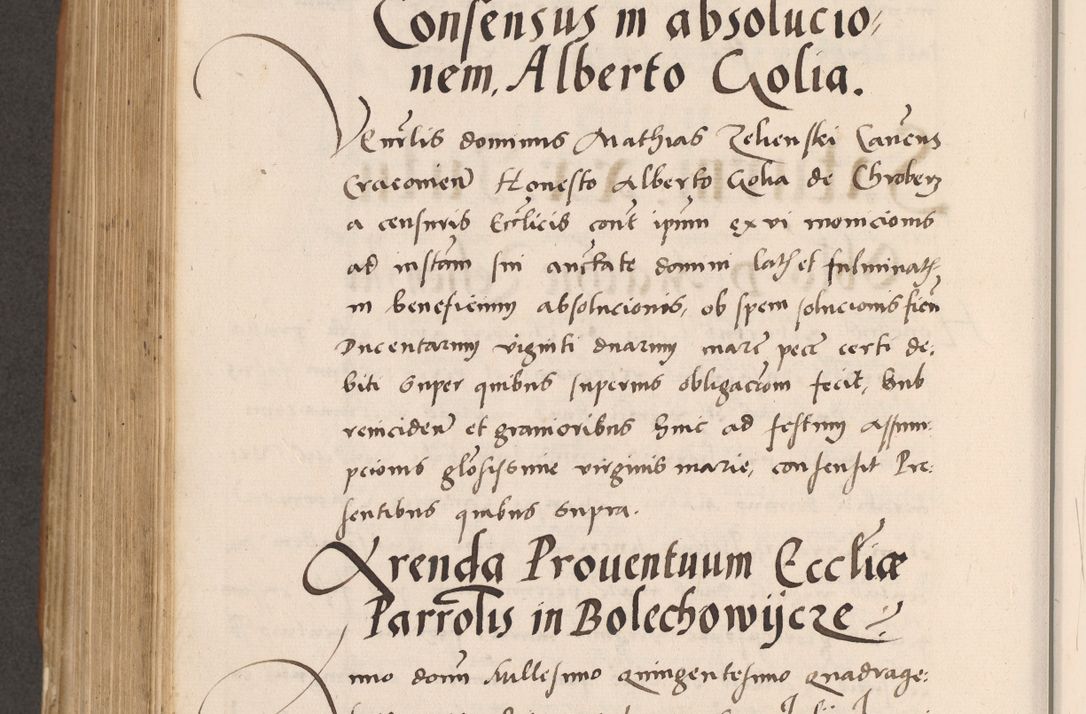 Consensus in absolucio
nem, Alberto Golia.
Venrlis dominus Mathias Zelienski Canens
Cracovien Honesto Alberto Golia de Chroberz
a censuris Ecclicis cont ipsum ex vi monicionis
ad instam sui auctate domini lath et fulminath
in beneficium absolucionis, ob spem solucionis fien
Ducentarum viginti duarum marc pece certi de:
biti super quibus superius obligacom fecit, sub
reinciden et gravioribus hinc ad festum Assum
pcionis glosissime virginis marie, consensit Pre:
sentibus quibus supra.
Arenda Prouentuum Eccliæ
Parrolis in Bolechowijcze
nno domi Millesimo quingentesimo quadrage: